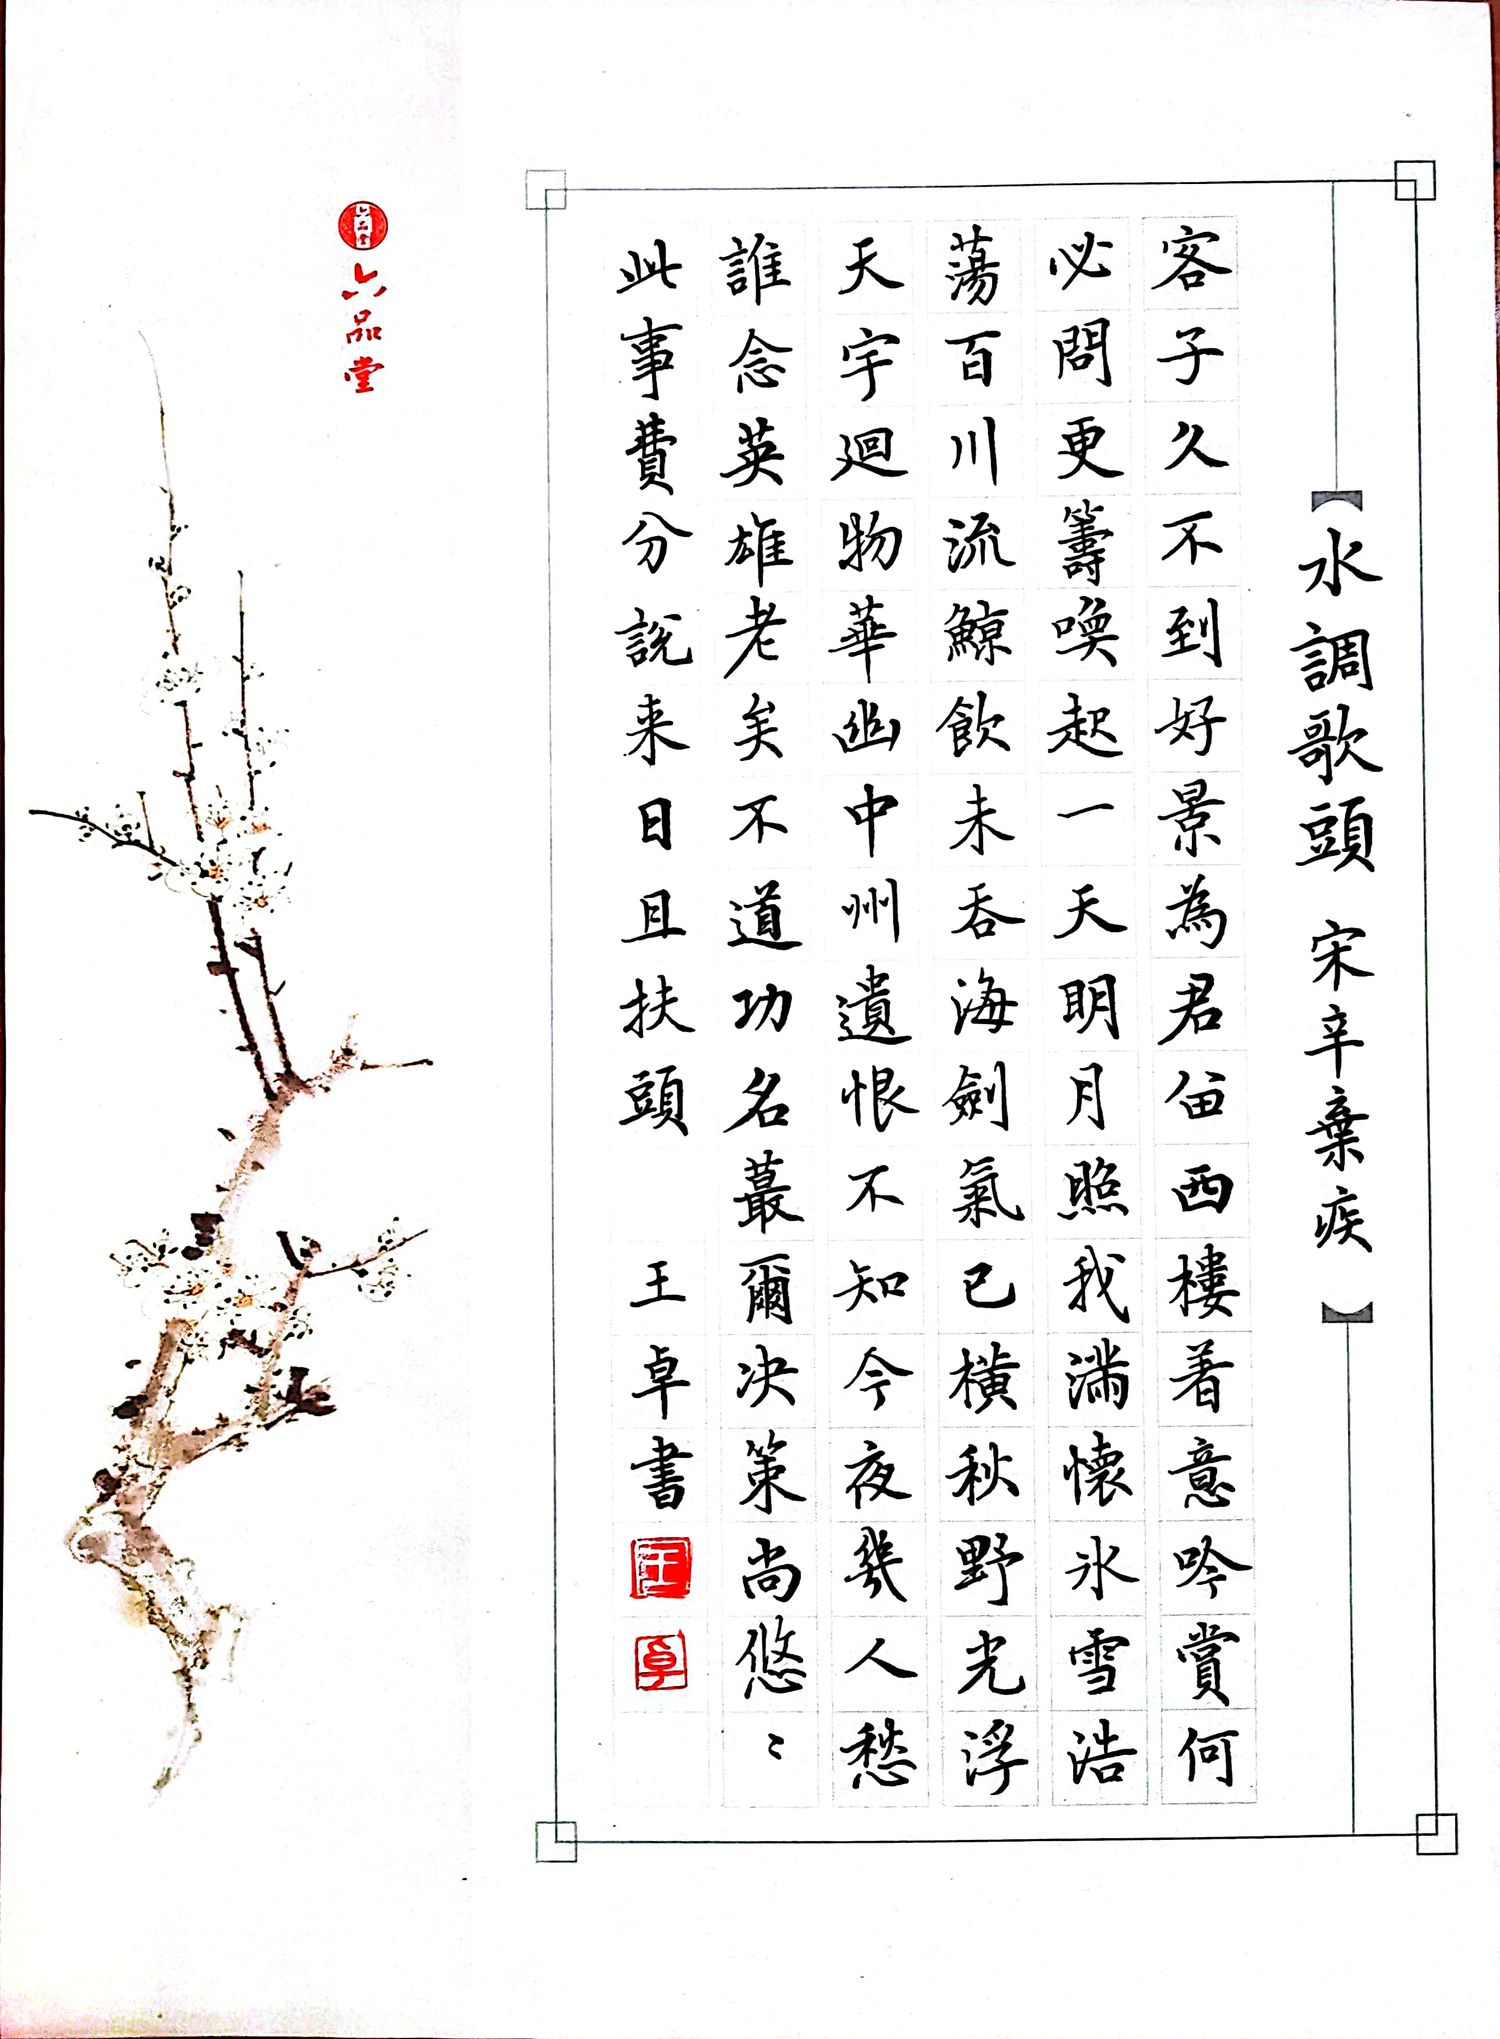 水調歌頭 宋辛棄疾
客子久不到好景為君留西樓着意吟賞何
必問更籌喚起一天明月照我滿懷氷雪浩
蕩百川流鯨飲未吞海劍氣已橫秋野光浮
天宇迴物華幽中州遺恨不知今夜幾人愁
誰念英雄老矣不道功名蕞爾决策尚悠〻
此事費分說来日且扶頭 王卓書
王
卓
六品堂
六品堂